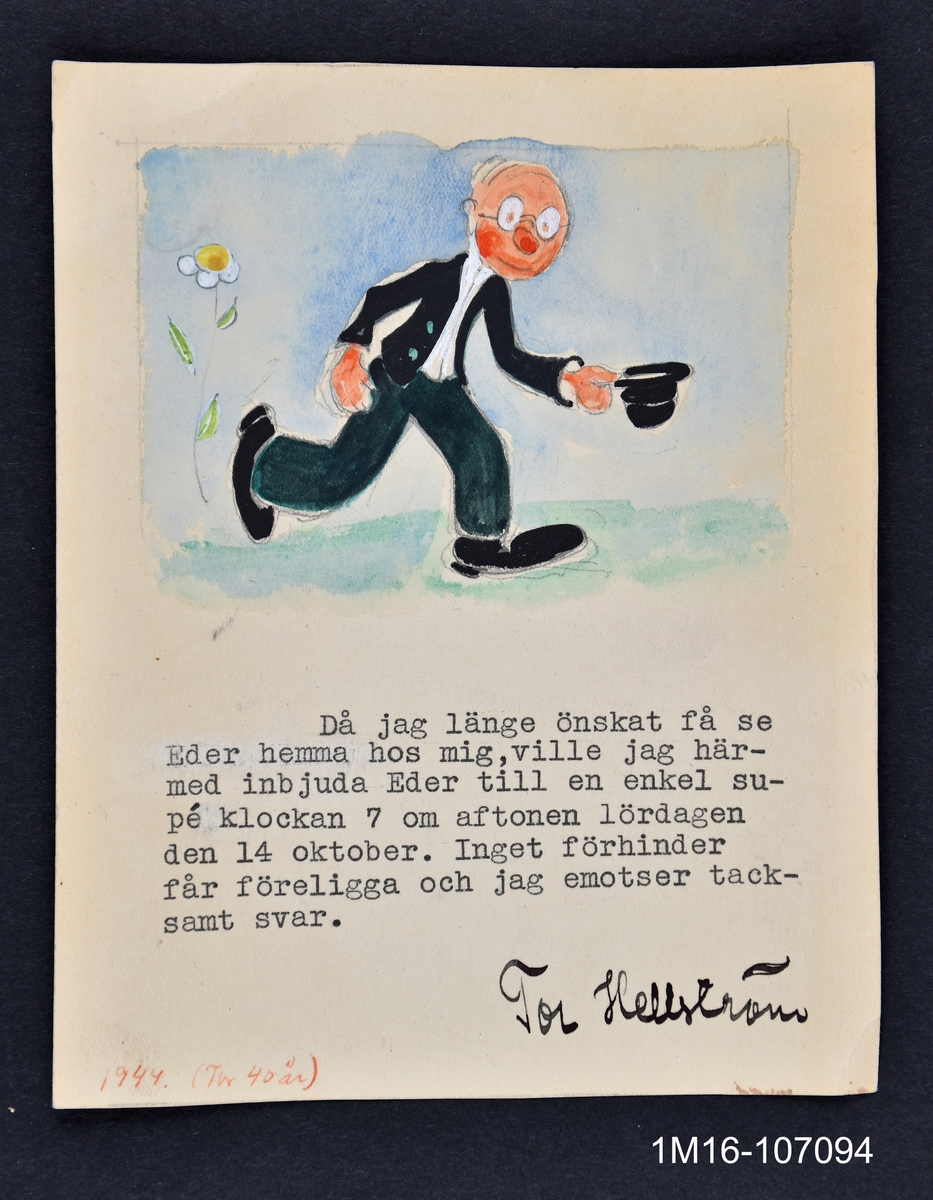 Då jag länge önskat få se
Eder hemma hos mig,ville jag här-
med inbjuda Eder till en enkel su-
pé klockan 7 om aftonen lördagen
den 14 oktober. Inget förhinder
får föreligga och jag emotser tack-
samt svar.
Tor Hellström
1944. (Tor 40 år)
1M16-107094